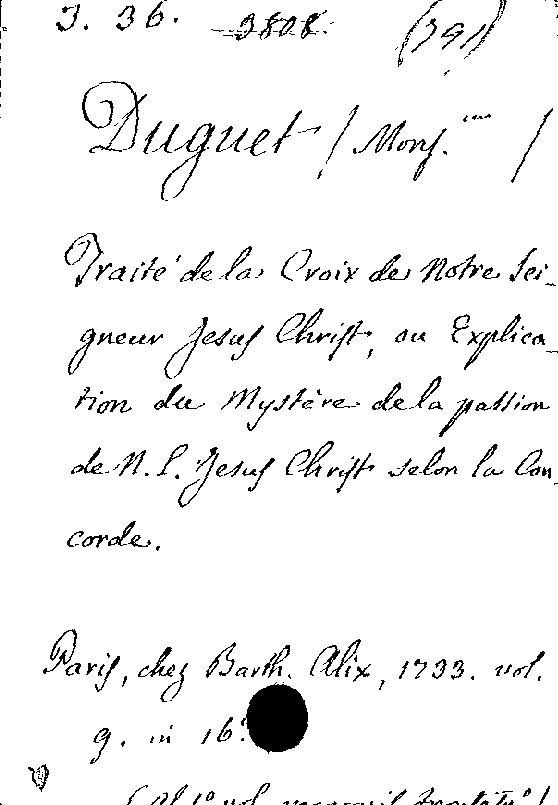 J. 36. 3808. (791)
Duguet / Mons. /
Traité de la Croix de Notre Sei-
gneur Jesus Christ, ou Explica-
tion du Mystère de la passion
de N. S. Jesus Christ selon la Con-
corde.
Paris, chez Barth. Alix, 1733. vol.
9. in 16º
( Al 1º vol.